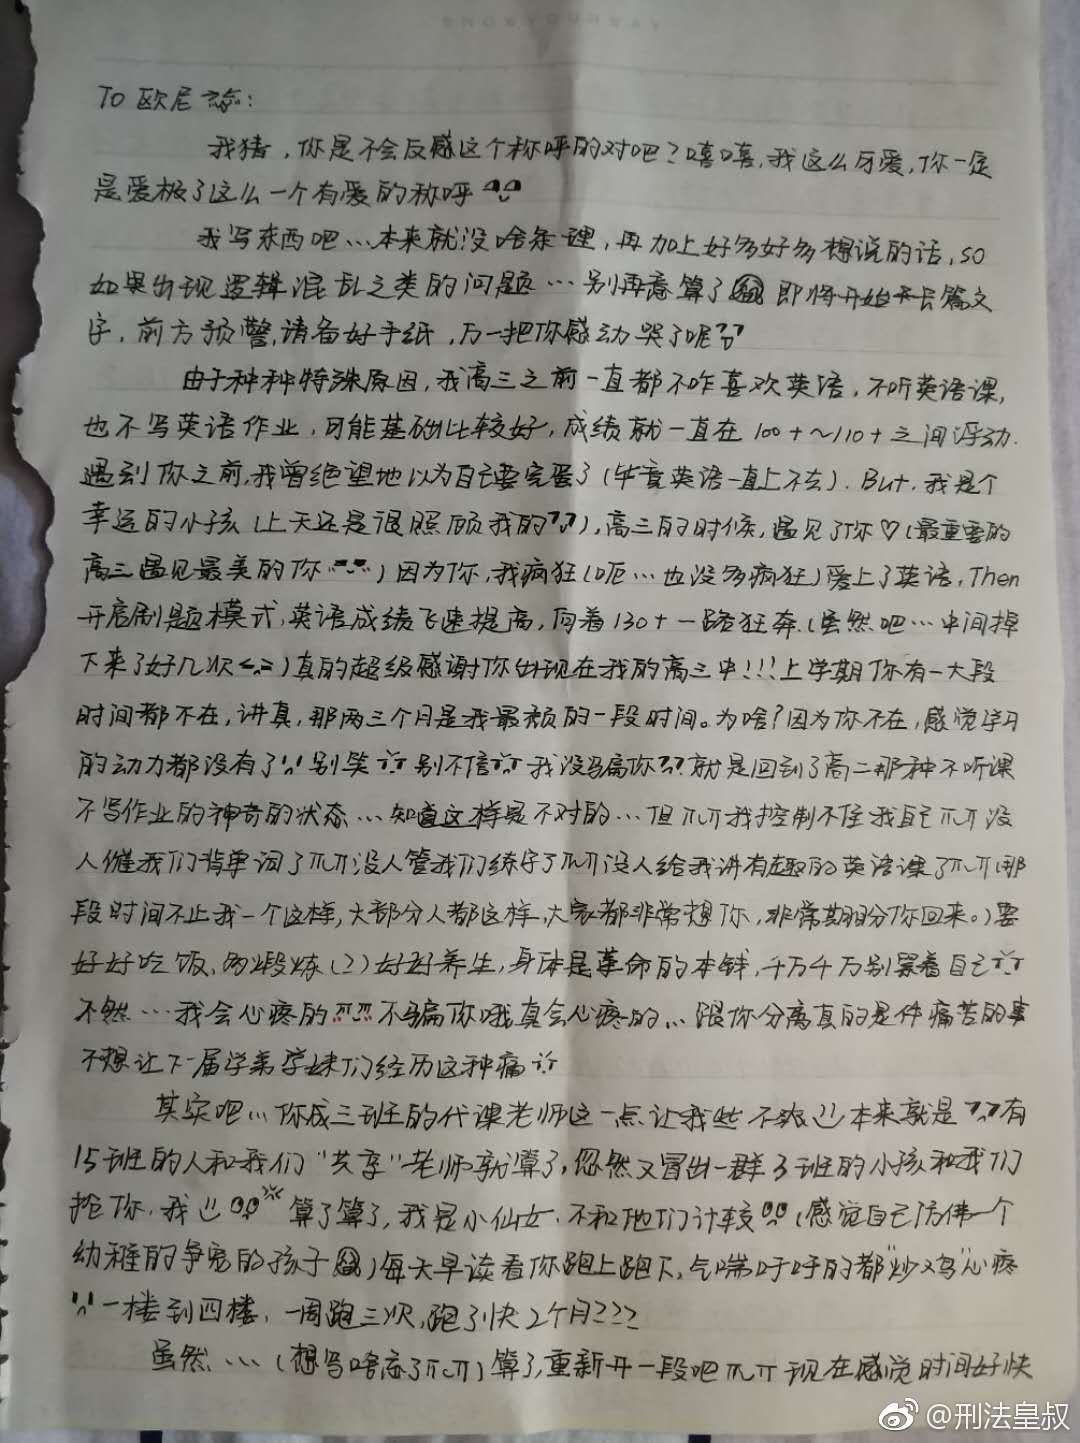 To 欧尼:
我猪，你是不会反感这个称呼的对吧？嘻嘻，我这么可爱，你一定
是爱极了这么一个有爱的称呼
我写东西吧…本来就没啥条理，再加上好多好多想说的话，so
如果出现逻辑混乱之类的问题…别再意算了 即将开始长篇文
字，前方预警，请备好手纸，万一把你感动哭了呢??
由于种种特殊原因，我高三之前一直都不咋喜欢英语，不听英语课，
也不写英语作业，可能基础比较好，成绩就一直在 100+~110+ 之间浮动.
遇到你之前，我曾绝望地以为自己要完蛋了(毕竟英语一直上不去). But, 我是个
幸运的小孩(上天还是很照顾我的)，高三的时候，遇见了你♡(最重要的
高三遇见最美的你)因为你，我疯狂(呃…也没多疯狂)爱上了英语，Then
开启刷题模式，英语成绩飞速提高，向着130+一路狂奔.(虽然吧…中间掉
下来了好几次)真的超级感谢你出现在我的高三中!!!上学期你有一大段
时间都不在，讲真，那两三个月是我最颓的一段时间。为啥?因为你不在，感觉学习
的动力都没有了 别笑 别不信 我没骗你 就是回到了高二那种不听课
不写作业的神奇的状态…知道这样是不对的…但 我控制不住我自己 没
人催我们背单词了 没人管我们练字了 没人给我讲有趣的英语课了 (那
段时间不止我一个这样，大部分人都这样，大家都非常想你，非常期盼你回来。)要
好好吃饭、多锻炼(?)好好养生，身体是革命的本钱，千万千万别累着自己
不然…我会心疼的 不骗你哦真会心疼的…跟你分离真的是件痛苦的事
不想让下一届学弟学妹们经历这种痛
其实吧…你成三班的代课老师这一点让我些不爽 本来就是 有
15班的人和我们“共享”老师就算了，忽然又冒出一群3班的小孩和我们
抢你，我 算了算了，我是小仙女，不和他们计较 (感觉自己仿佛一个
幼稚的争宠的孩子)每天早读看你跑上跑下，气喘吁吁的都“炒鸡”心疼
一楼到四楼，一周跑三次，跑了快2个月???
虽然…(想写啥忘了)算了，重新开一段吧 现在感觉时间好快
@刑法皇叔